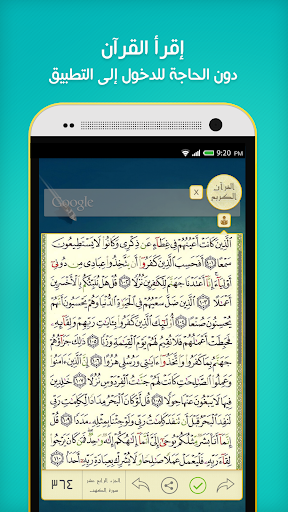 إقرأ القرآن
دون الحاجة للدخول إلى التطبيق
9:20 PM
Google
X
القرآن
الكريم
الَّذِينَ كَانَتْ أَعْيُنُهُمْ فِي غِطَاءٍ عَن ذِكْرِي وَكَانُوا لَا يَسْتَطِيعُونَ
سَمْعًا ١٠١ أَفَحَسِبَ الَّذِينَ كَفَرُوا أَن يَتَّخِذُوا عِبَادِي مِن دُونِي
أَوْلِيَاءَ إِنَّا أَعْتَدْنَا جَهَنَّمَ لِلْكَافِرِينَ نُزُلًا ١٠٢ قُلْ هَلْ نُنَبِّئُكُم بِالْأَخْسَرِينَ
أَعْمَالًا ١٠٣ الَّذِينَ ضَلَّ سَعْيُهُمْ فِي الْحَيَاةِ الدُّنْيَا وَهُمْ يَحْسَبُونَ أَنَّهُمْ
يُحْسِنُونَ صُنْعًا ١٠٤ أُولَٰئِكَ الَّذِينَ كَفَرُوا بِآيَاتِ رَبِّهِمْ وَلِقَائِهِ
فَحَبِطَتْ أَعْمَالُهُمْ فَلَا نُقِيمُ لَهُمْ يَوْمَ الْقِيَامَةِ وَزْنًا ١٠٥ ذَٰلِكَ جَزَاؤُهُمْ
جَهَنَّمُ بِمَا كَفَرُوا وَاتَّخَذُوا آيَاتِي وَرُسُلِي هُزُوًا ١٠٦ إِنَّ الَّذِينَ آمَنُوا
وَعَمِلُوا الصَّالِحَاتِ كَانَتْ لَهُمْ جَنَّاتُ الْفِرْدَوْسِ نُزُلًا ١٠٧ خَالِدِينَ
فِيهَا لَا يَبْغُونَ عَنْهَا حِوَلًا ١٠٨ قُل لَّوْ كَانَ الْبَحْرُ مِدَادًا لِّكَلِمَاتِ رَبِّي
لَنَفِدَ الْبَحْرُ قَبْلَ أَن تَنفَدَ كَلِمَاتُ رَبِّي وَلَوْ جِئْنَا بِمِثْلِهِ مَدَدًا ١٠٩ قُلْ
إِنَّمَا أَنَا بَشَرٌ مِّثْلُكُمْ يُوحَىٰ إِلَيَّ أَنَّمَا إِلَٰهُكُمْ إِلَٰهٌ وَاحِدٌ فَمَن كَانَ يَرْجُو
لِقَاءَ رَبِّهِ فَلْيَعْمَلْ عَمَلًا صَالِحًا وَلَا يُشْرِكْ بِعِبَادَةِ رَبِّهِ أَحَدًا ١١٠
٣٦٤
الجزء الرابع عشر
سورة الكهف